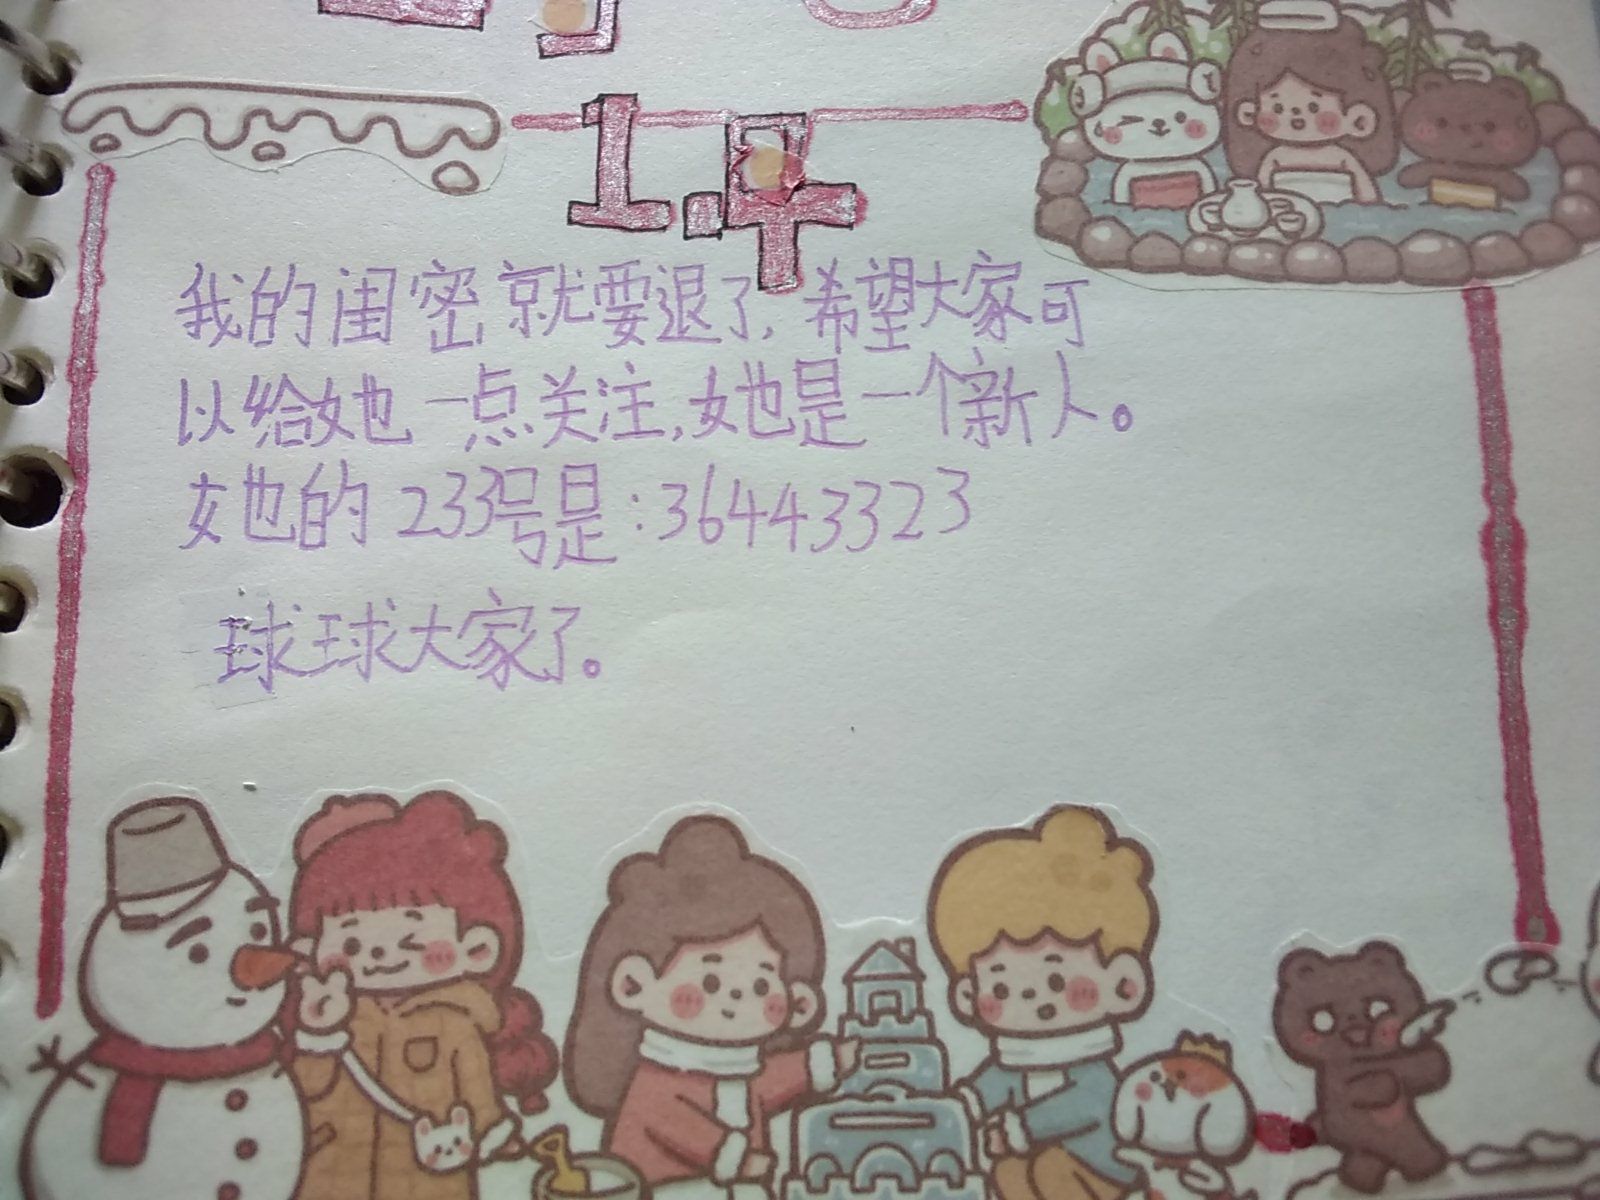 1.早
我的闺密,就要退了,希望大家可
以给她一点关注,她是一个新人。
她的233号是:36443323
球球大家了。